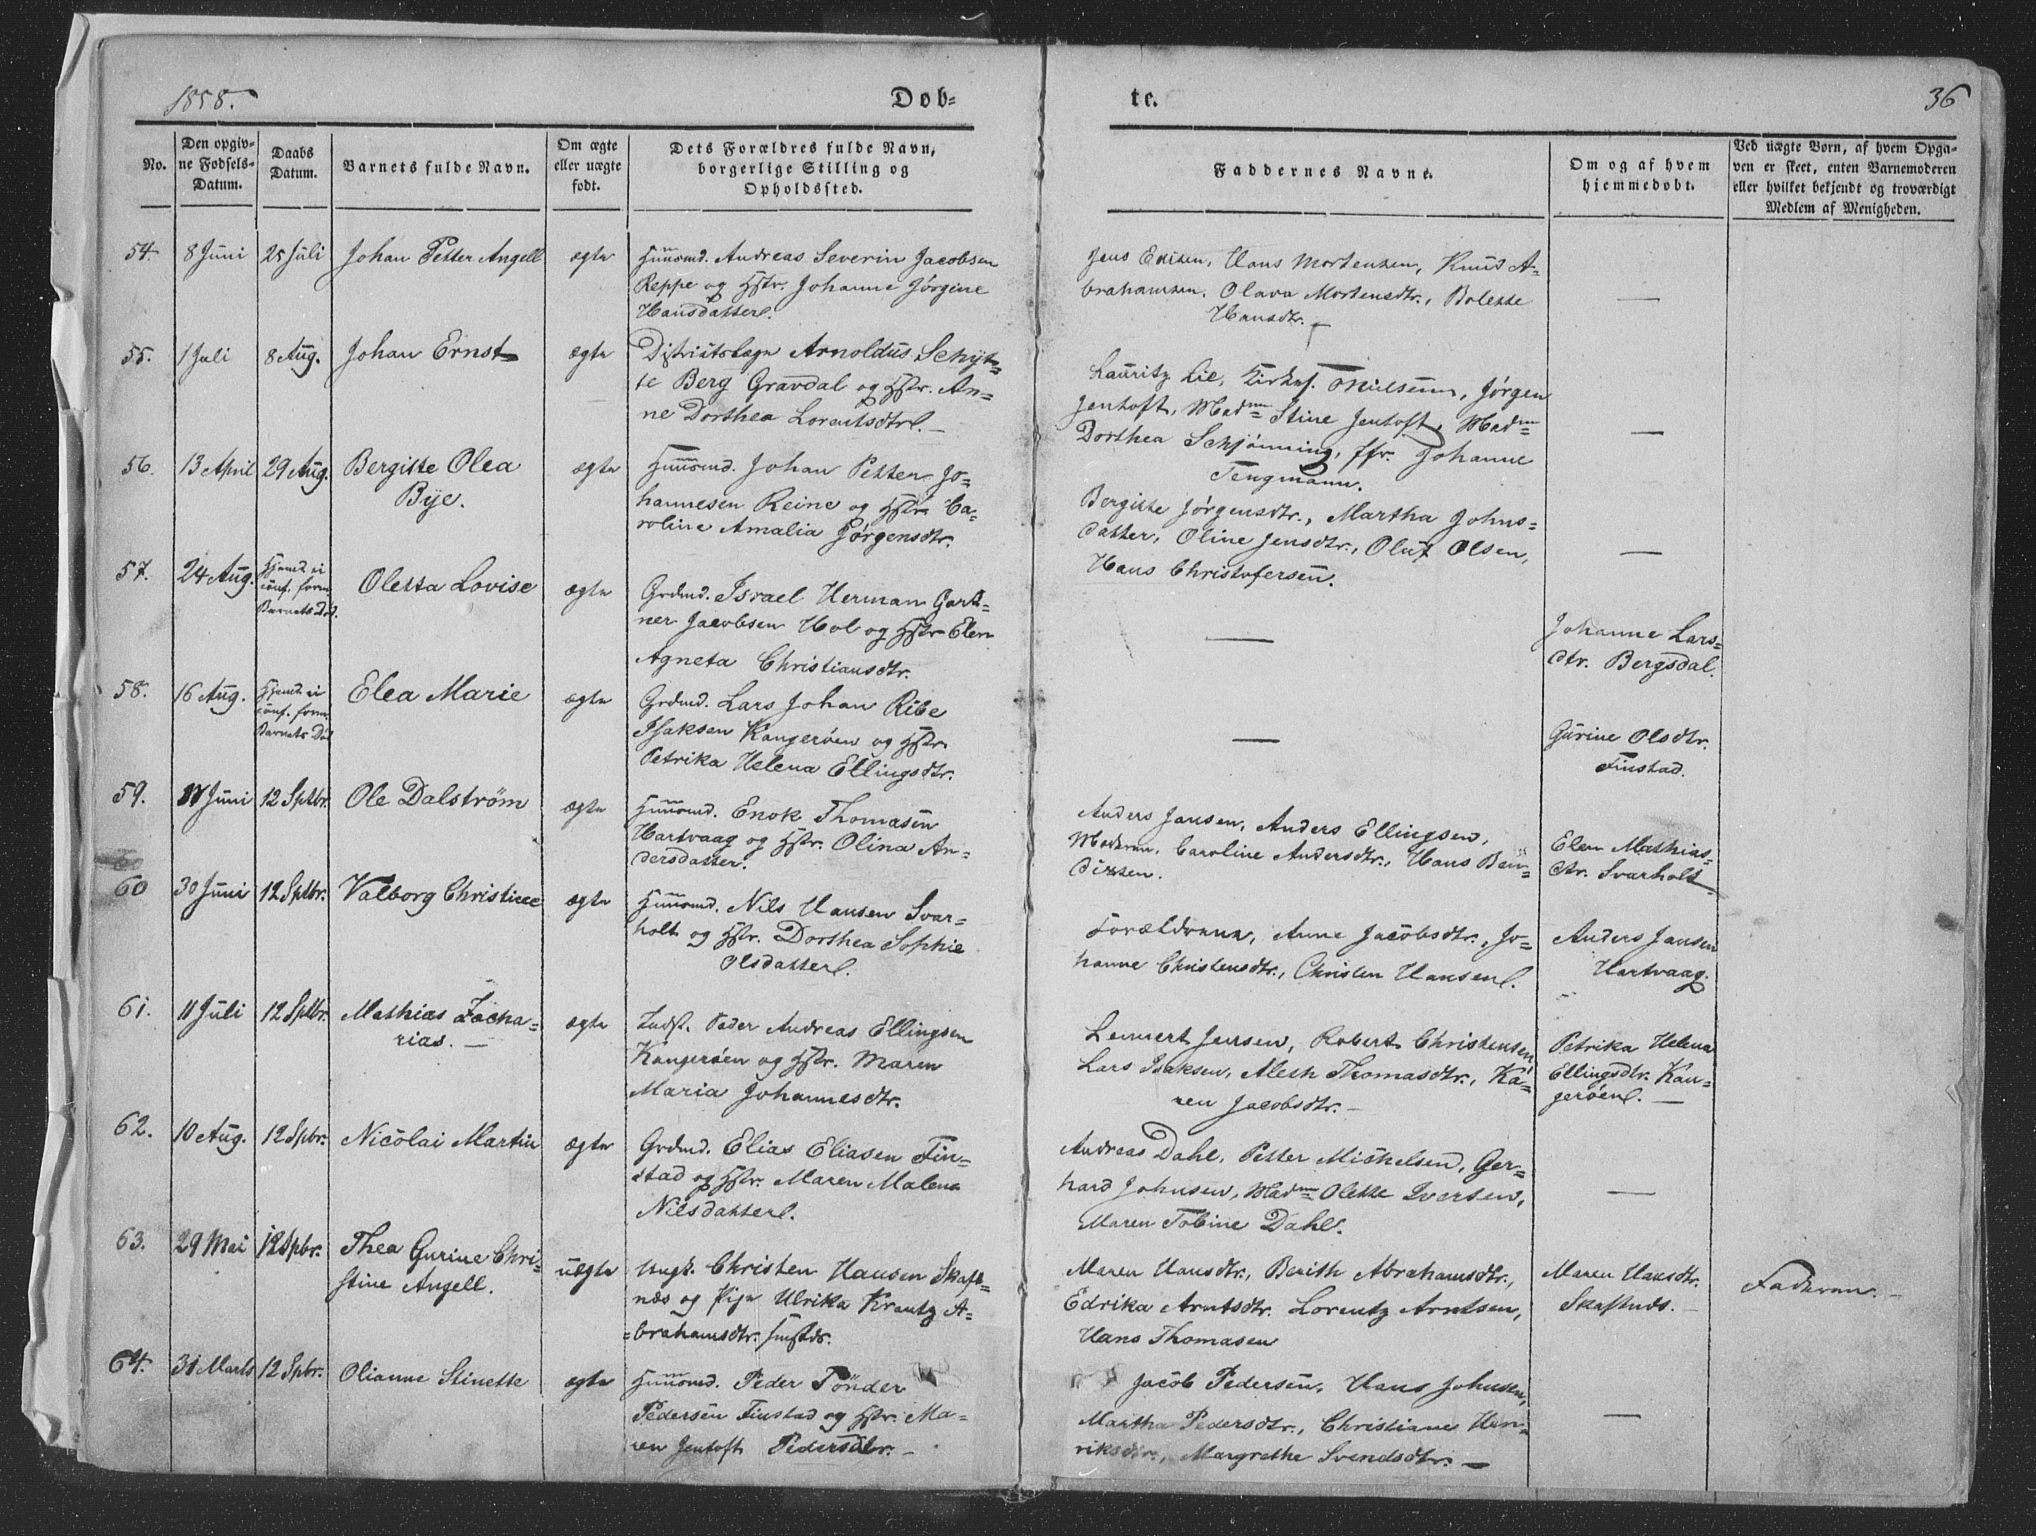 1858.
Døb-
te.
36
No.
Den opgiv-
ne Fødsels-
Datum.
Daabs
Datum.
Barnets fulde Navn.
Om ægte
eller uægte
født.
Dets Forældres fulde Navn,
borgerlige Stilling og
Opholdssted.
Faddernes Navne.
Om og af hvem
hjemmedøbt.
Ved uægte Børn, af hvem Opga-
ven er skeet, enten Barnemoderen
eller hvilket bekjendt og troværdigt
Medlem af Menigheden.
54. 8 Juni 25 Juli Johan Petter Angell ægte
Huusmd. Andreas Severin Jacobsen
Reppe og Hstr. Johanne Jørgine
Hansdatter.
Jens Edisen, Hans Mortensen, Knud A-
brahamsen, Olava Mortensdtr., Bolette
Hansdtr. —
—
55. 1 Juli 8 Aug. Johan Ernst ægte
Distriktslæge Arnoldus Schyt-
te Berg Gravdal og Hstr. An-
ne Dorthea Lorentsdtr. —
Lauritz Lie, Kirks. Nielsen, Jørgen
Jentoft, Madm Stine Jentoft, Madm
Dorthea Schjønning, Jfr. Johanne
Tengmann.
—
56. 13 April 29 Aug. Bergitte Olea
Bye.
ægte
Huusmd. Johan Petter Jo-
hannesen Reine og Hstr. Ca-
roline Amalia Jørgensdtr.
Bergitte Jørgensdtr., Martha Johns-
datter, Oline Jensdtr., Oluf Olsen,
Hans Christofersen.
—
57. 24 Aug.
Hjemd. ei
conf. form.
Barnets Død.
Oletta Lovise ægte
Grdmd. Israel Herman Gart-
ner Jacobsen Hol og Hstr. Elen
Agneta Christiansdtr.
—
Johanne Lars-
dtr. Bergsdal.
58. 16 Aug.
Hjemd. ei
conf. form.
Barnets Død
Elea Marie ægte
Grdmd. Lars Johan Ribe
Isaksen Kangerøen og Hstr.
Petrika Helena Ellingsdtr.
—
Gurine Olsdtr.
Finstad.
59. Juni 12 Sptbr. Ole Dalstrøm ægte
Huusmd. Enok Thomasen
Hartvaag og Hstr. Olina An-
dersdatter.
Anders Jansen, Anders Ellingsen,
Moderen, Caroline Andersdtr., Hans Ben-
dixsen.
Elen Mathias-
dtr. Svarholt
60 30 Juni 12 Sptbr. Valborg Christine ægte
Huusmd. Nils Hansen Svar-
holt og Hstr. Dorthea Sophie
Olsdatter.
Forældrene, Anne Jacobsdtr., Jo-
hanne Christensdtr., Christen Hansen.
Anders Jansen
Hartvaag.
61. 11 Juli 12 Sptbr. Mathias Zacha-
rias. —
ægte
Indst. Peder Andreas Ellingsen
Kangerøen og Hstr. Maren
Maria Johannesdtr.
Lennert Jensen, Robert Christensen,
Lars Isaksen, Aleth Thomasdtr., Ka-
ren Jacobsdtr. —
Petrika Helena
Ellingsdtr. Kan-
gerøen. —
62. 10 Aug. 12 Spbr. Nicolai Martin ægte
Grdmd. Elias Eliasen Fin-
stad og Hstr. Maren Malena
Nilsdatter.
Andreas Dahl, Petter Michelsen, Ger-
hard Johnsen, Madm Olette Iversen,
Maren Tobine Dahl.
—
63. 29 Mai 12 Spbr. Thea Gurine Chri-
stine Angell.
uægte
Ungk. Christen Hansen Skaft-
næs og Pige Ulrika Krantz A-
brahamsdtr.
Maren Hansdtr., Berith Abrahamsdtr.,
Edrika Arntsdtr. Lorentz Arntsen,
Hans Thomasen
Maren Hansdtr.
Skaftnæs. —
Faderen. —
64. 31 Marts 12 Spbr. Olianne Stinette ægte
Huusmd. Peder Tønder
Pedersen Finstad og Hstr. Ma-
ren Jentoft Pedersdtr. —
Jacob Pedersen, Hans Johnsen,
Martha Pedersdtr., Christiane Hen-
riksdtr., Margrethe Svendsdtr. —
—